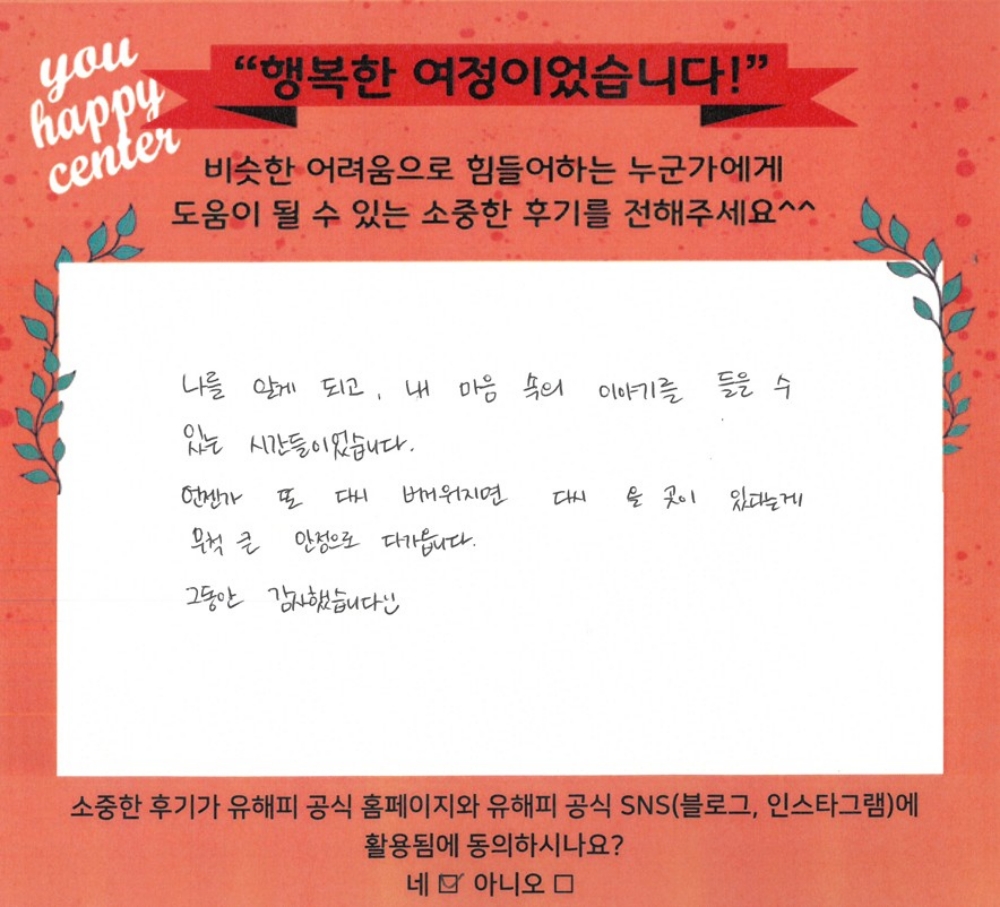 you
happy
center
“행복한 여정이었습니다!”
비슷한 어려움으로 힘들어하는 누군가에게
도움이 될 수 있는 소중한 후기를 전해주세요^^
나를 알게 되고, 내 마음 속의 이야기를 들을 수
있는 시간들이었습니다.
언젠가 또 다시 버거워지면 다시 올 곳이 있다는게
무척 큰 안정으로 다가옵니다.
그동안 감사했습니다!!
소중한 후기가 유해피 공식 홈페이지와 유해피 공식 SNS(블로그, 인스타그램)에
활용됨에 동의하시나요?
네 ☑ 아니오 ☐